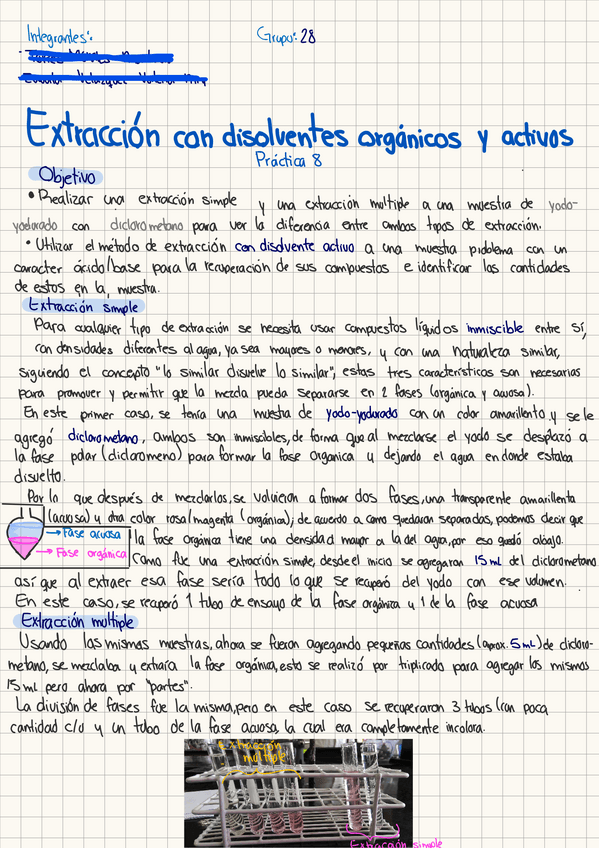 Integrantes:
Grupo: 28
Extracción con disolventes orgánicos y activos
Práctica 8
Objetivo
• Realizar una extracción simple y una extracción multiple a una muestra de yodo-
yodurado con diclorometano para ver la diferencia entre ambos tipos de extracción.
• Utilizar el método de extracción con disolvente activo a una muestra problema con un
caracter ácido/base para la recuperación de sus compuestos e identificar las cantidades
de estos en la muestra.
Extracción simple
Para cualquier tipo de extracción se necesita usar compuestos líquidos inmiscible entre sí,
con densidades diferentes al agua, ya sea mayores o menores, y con una naturaleza similar,
siguiendo el concepto "lo similar disuelve lo similar", estas tres características son necesarias
para promover y permitir que la mezcla pueda separarse en 2 fases (orgánica y acuosa).
En este primer caso, se tenía una muestra de yodo-yodurado con un color amarillento y se le
agregó diclorometano, ambos son inmiscibles, de forma que al mezclarse el yodo se desplazó a
la fase polar (dicloromeno) para formar la fase organica y dejando el agua en donde estaba
disuelto.
Por lo que después de mezclarlos, se volvieron a formar dos fases, una transparente amarillenta
(acuosa) y otra color rosa/magenta (orgánica); de acuerdo a como quedaron separadas, podemos decir que
→ Fase acuosa
la fase orgánica tiene una densidad mayor a la del agua, por eso quedó abajo.
→ Fase orgánica
Como fue una extracción simple, desde el inicio se agregaron 15 ml del diclorometano
así que al extraer esa fase sería todo lo que se recuperó del yodo con ese volumen.
En este caso, se recuperó 1 tubo de ensayo de la fase orgánica y 1 de la fase acuosa
Extracción multiple
Usando las mismas muestras, ahora se fueron agregando pequeñas cantidades (aprox. 5 mL) de dicloro-
metano, se mezclaba y extraía la fase orgánica, esto se realizó por triplicado para agregar los mismos
15 ml pero ahora por "partes".
La división de fases fue la misma, pero en este caso se recuperaron 3 tubos (con poca
cantidad c/u y un tubo de la fase acuosa, la cual era completamente incolora.
Extracción
multiple
Extracción simple